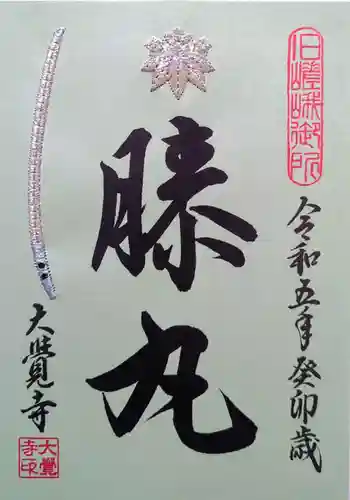 旧嵯峨御所
令和五年癸卯歳
膝丸
大覺寺
大覺
寺印